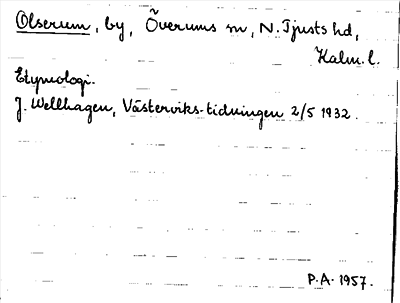 Olserum, by, Överums sn, N. Tjusts hd,
Kalm. l.
Etymologi.
J. Wellhagen, Västerviks-tidningen 2/5 1932.
P.A. 1957.